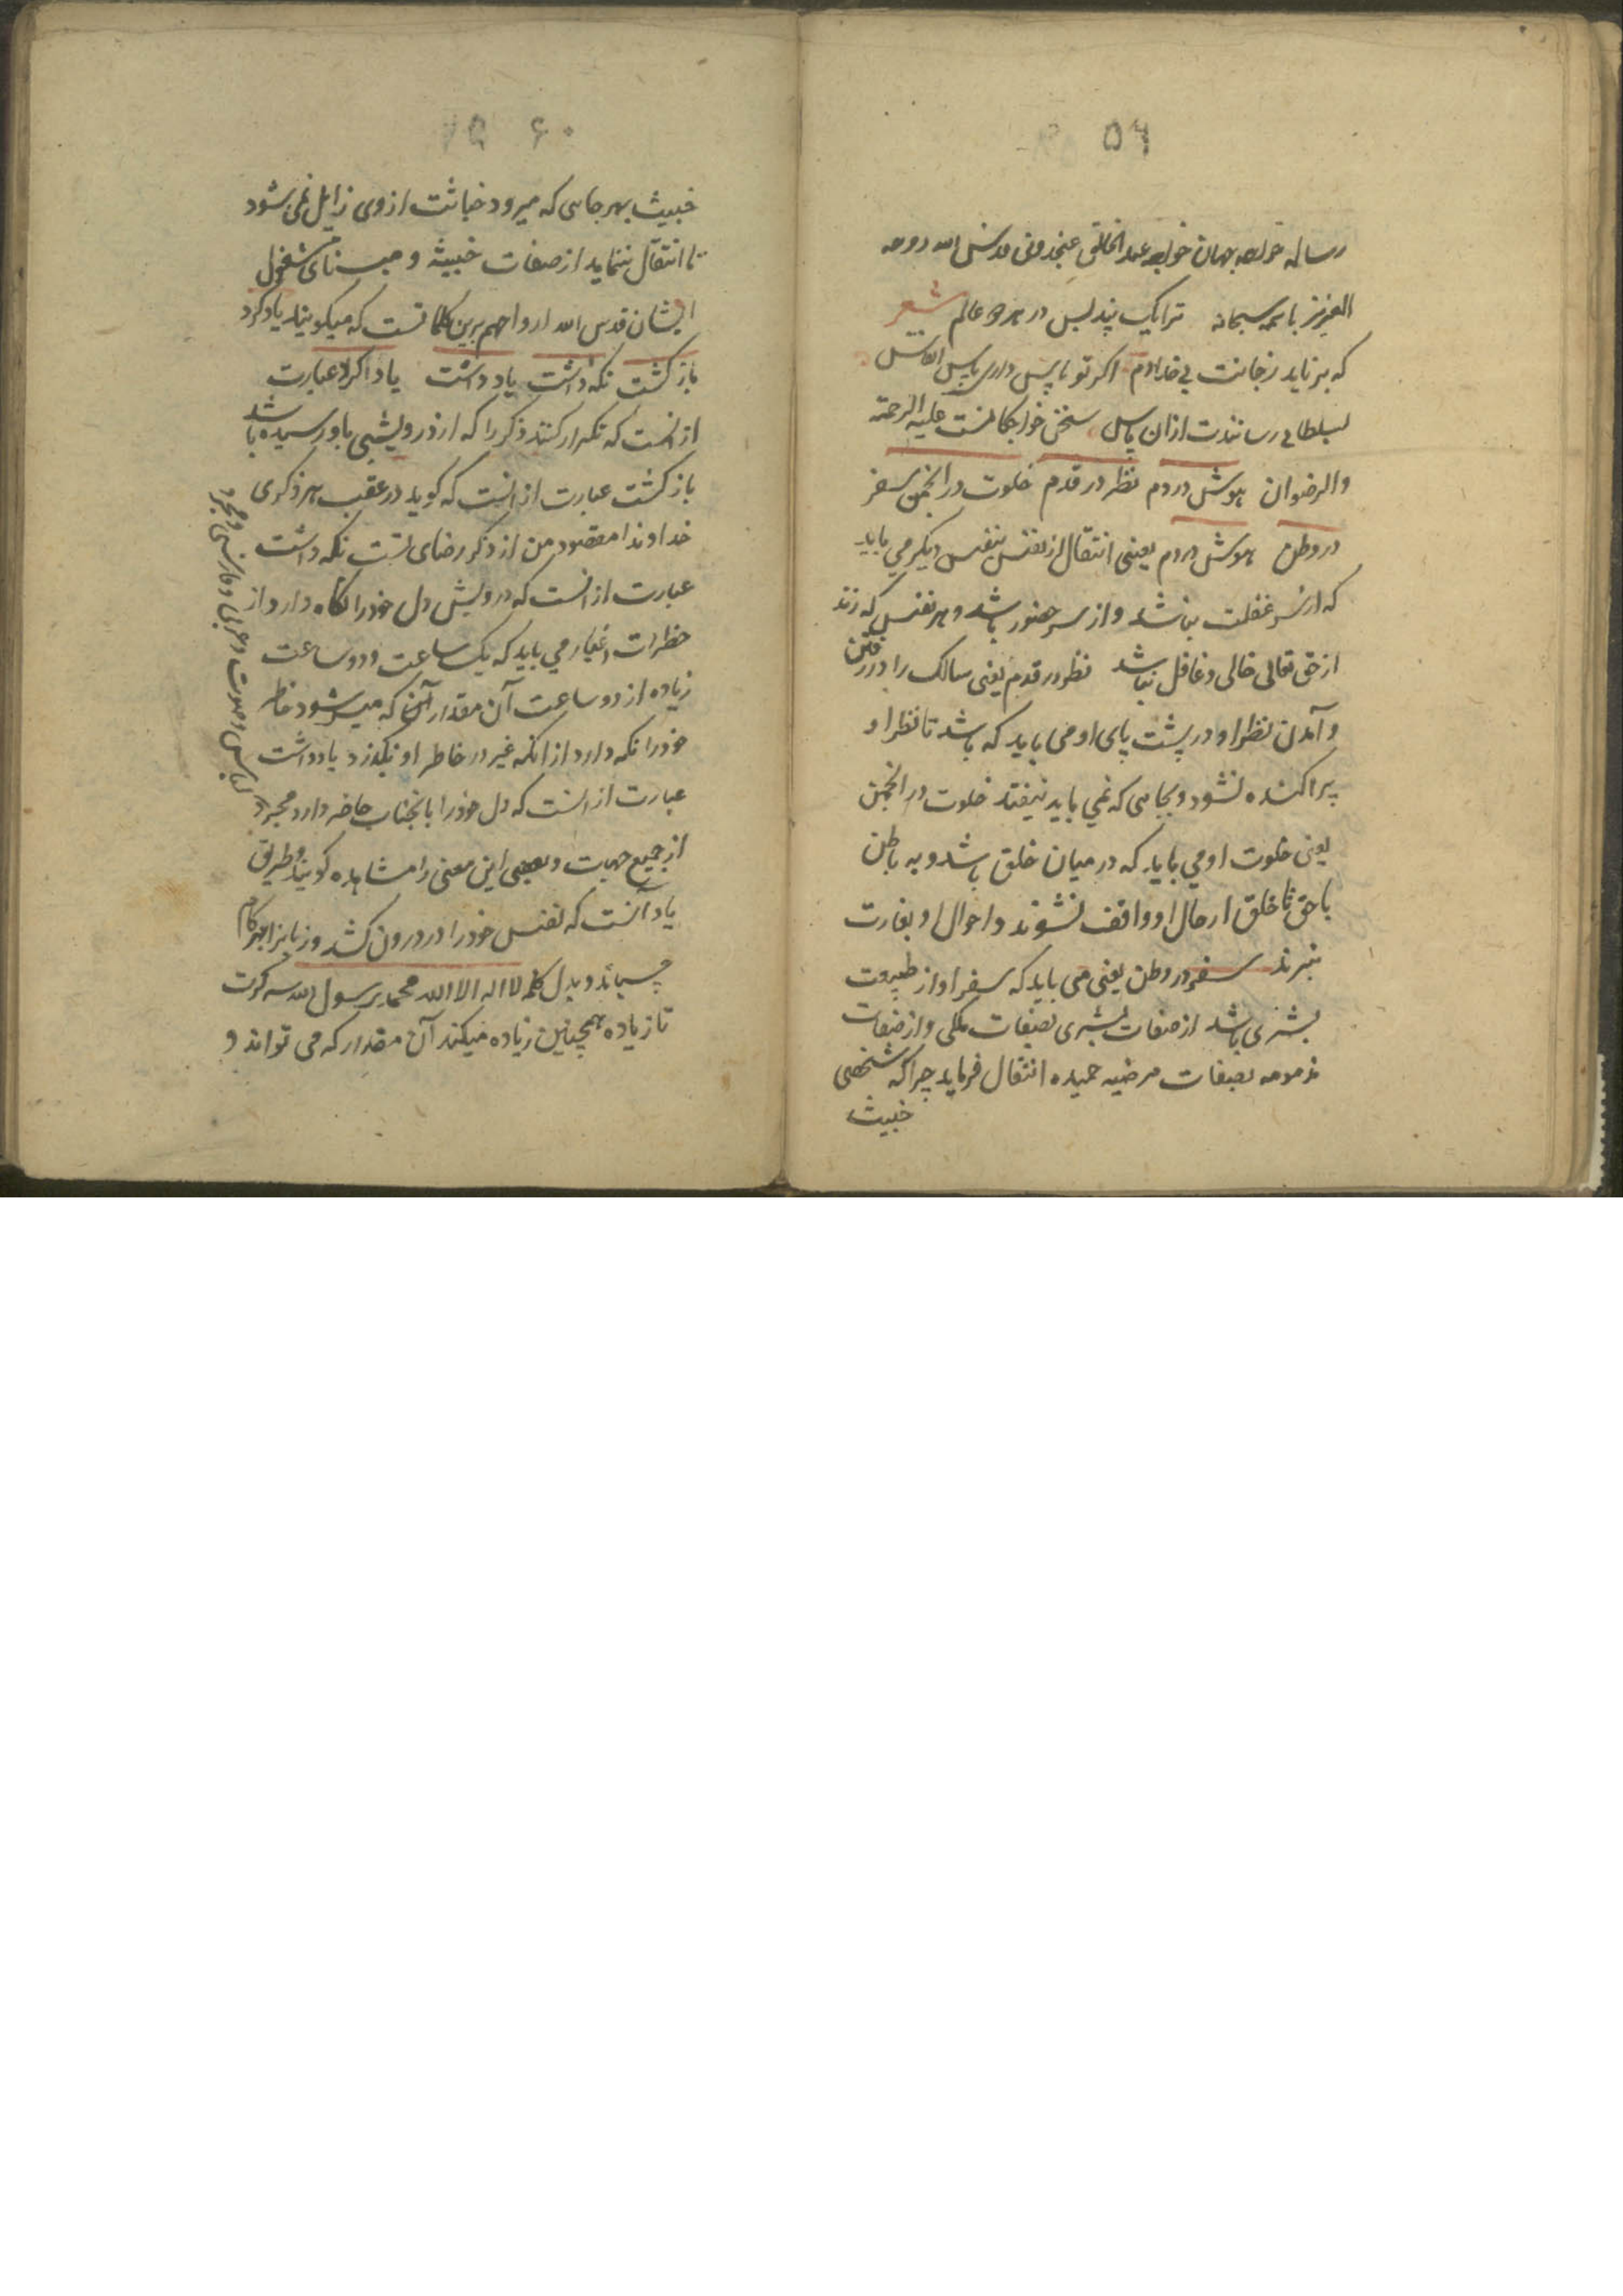 ۵۹
رساله خواجه جهان خواجه عبد الخالق غجدوانی قدس الله روحه
العزیز باسمه سبحانه ترا یک پند بس در هر دو عالم شعر
که برناید ز جانت بی خدا دم اکر تو پاس داری پاس انفاس
بسلطانی رسانندت ازان پاس سخن خواجکانست علیه الرحمة
والرضوان هوش در دم نظر در قدم خلوت در انجمن سفر
در وطن هوش در دم یعنی انتقال از نفس بنفس دیکر می باید
که از سر غفلت نباشد و از سر حضور باشد و هر نفس که زند
از حق تعالی خالی و غافل نباشد نظر در قدم یعنی سالک را در رفتن
و آمدن نظر او در پشت پای او می باید که باشد تا نظر او
پراکنده نشود و بجایی که نمی باید نیفتد خلوت در انجمن
یعنی خلوت او می باید که در میان خلق باشد و به باطن
با حق تا خلق از حال او واقف نشوند و احوال او بغارت
نبرند سفر در وطن یعنی می باید که سفر او از طبیعت
بشری باشد از صفات بشری بصفات ملکی و از صفات
مذمومه بصفات مرضیه حمیده انتقال فرماید چراکه شخصی
خبیث
۶۰
خبیث بهر جایی که میرود خباثت از وی زایل نمی شود
تا انتقال ننماید از صفات خبیثه و مبنای شغل
ایشان قدس الله ارواحهم برین کلماتست که میکویند یاد کرد
باز کشت نکه داشت یاد داشت یاد کرد عبارت
از انست که تکرار کنند ذکر را که از درویشی باو رسیده باشد
باز کشت عبارت از انست که کوید در عقب هر ذکری
خداوندا مقصود من از ذکر رضای تست نکه داشت
عبارت از انست که درویش دل خود را نکاه دارد از
خطرات اغیار می باید که یک ساعت و دو ساعت
زیاده از دو ساعت آن مقدار آن که میسر شود خاطر
خود را نکه دارد از انکه غیر در خاطر او نکذرد یادداشت
عبارت از انست که دل خود را بانجناب حاضر دارد مجرد
از لباس و صوت و عربی و فارسی و مجرد
از جمیع جهت و بعضی این معنی را مشاهده کویند و طریق
یاد آنست که نفس خود را در درون کشد و زبان را بر کام
چسپاند و بدل کلمه لا اله الا الله محمد رسول الله سه کرت
تا زیاده همچنین زیاده میکند آن مقدار که می تواند و